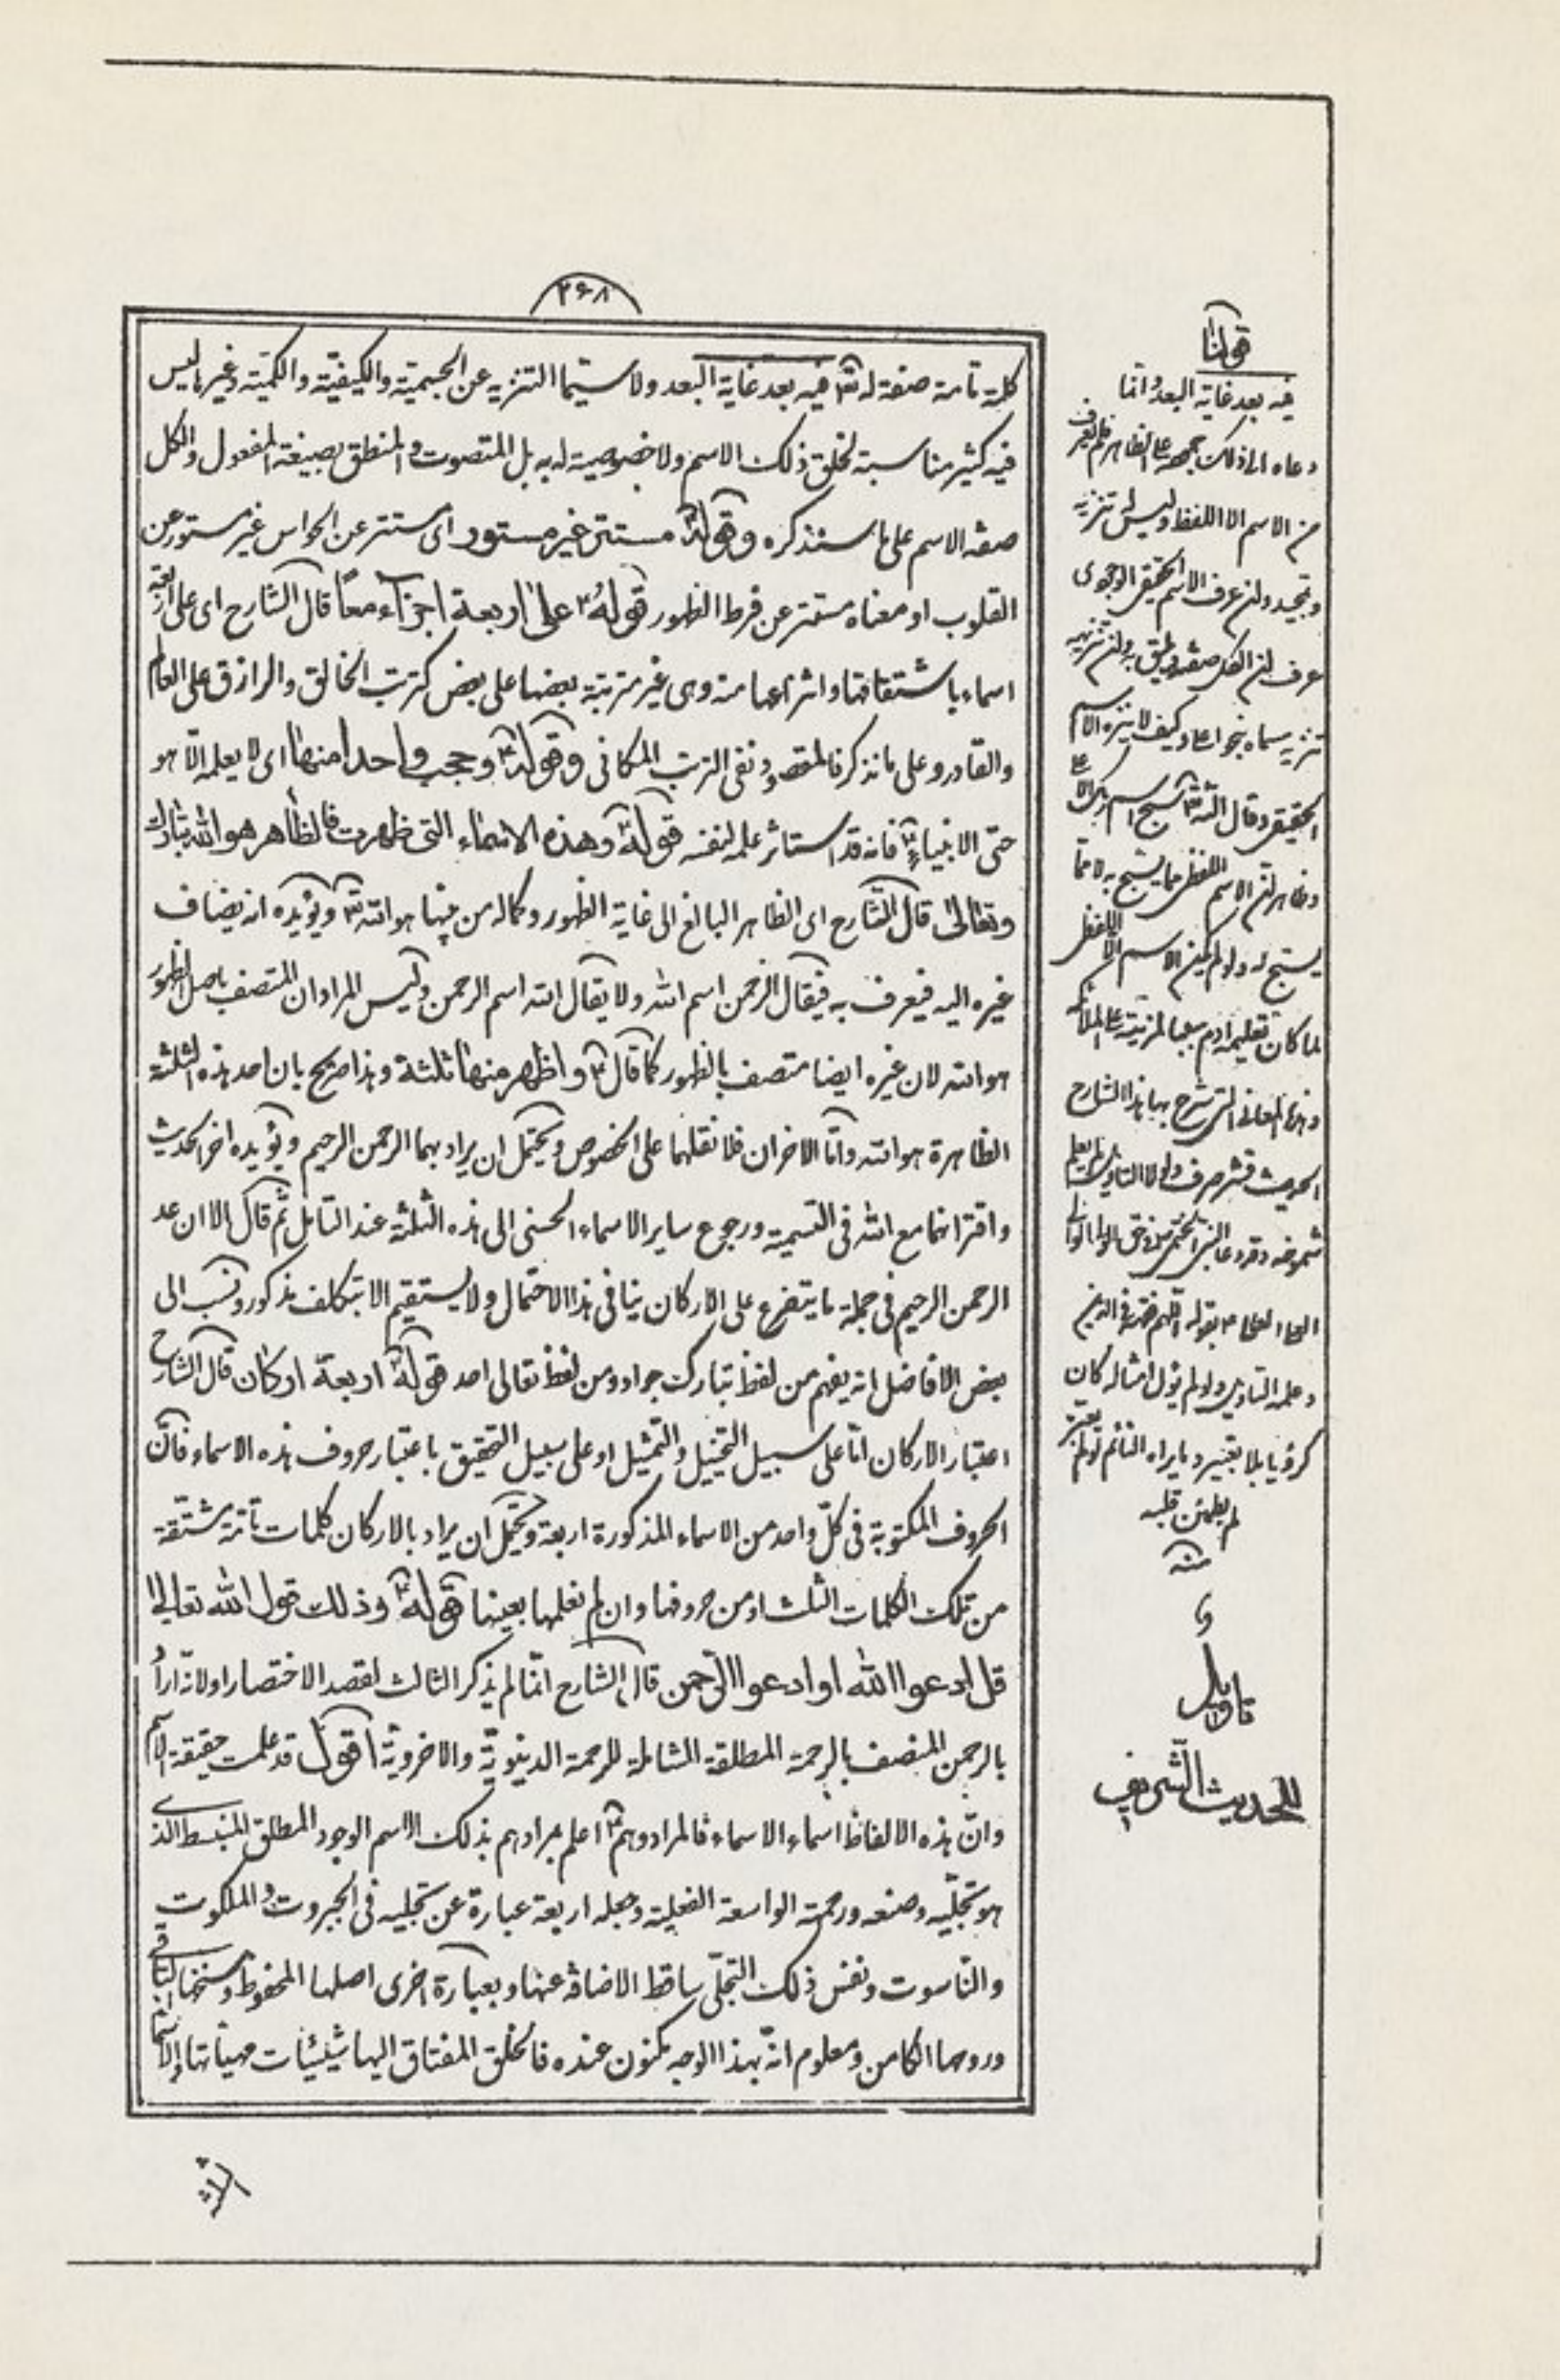 ۲۶۸
كلمة تامة صفة له تع فيه بعد غاية البعد ولا سيّما التنزيه عن الجسميّة والكيفيّة والكميّة وغير ما ليس
فيه كثير مناسبة لخلق ذلك الاسم ولا خصوصية له به بل المتصوت والمنطق بصيغة المفعول والكل
صفة الاسم على ما سنذكره وقوله مستتر غير مستور اى مستتر عن الحواس غير مستور عن
القلوب او معناه مستتر عن فرط الظهور قوله على اربعة اجزاء معًا قال الشارح اى على اربعة
اسماء باشتقاقها وانتزاعها منه وهى غير مترتبة بعضها على بعض كترتب الخالق والرازق على العالم
والقادر وعلى ما نذكر فالمقصود نفى الترتب المكانى وقوله وحجب واحدا منها اى لا يعلمه الّا هو
حتى الانبياء فانه قد استاثر علمه لنفسه قوله وهذه الاسماء التى ظهرت فالظاهر هو الله تبارك
وتعالى قال الشارح اى الظاهر البالغ الى غاية الظهور وكماله من بينها هو الله تع ويؤيده انه يضاف
غيره اليه فيعرف به فيقال الرحمن اسم الله ولا يقال الله اسم الرحمن وليس المراد ان المتصف باصل الظهور
هو الله لان غيره ايضا متصف بالظهور كما قال واظهر منها ثلثة وهذا صريح بان احد هذه الثلثة
الظاهرة هو الله وامّا الاخران فلا نقلهما على الخصوص ويحتمل ان يراد بهما الرحمن الرحيم ويؤيده اخر الحديث
واقترانهما مع الله فى التسمية ورجوع ساير الاسماء الحسنى الى هذه الثلثة عند التامل ثم قال الا ان عد
الرحمن الرحيم فى جملة ما يتفرع على الاركان ينافى هذا الاحتمال ولا يستقيم الا بتكلف مذكور ونسب الى
بعض الافاضل انه يفهم من لفظ تبارك جواد ومن لفظ تعالى احد قوله اربعة اركان قال الشارح
اعتبار الاركان امّا على سبيل التخييل والتمثيل او على سبيل التحقيق باعتبار حروف هذه الاسماء فانّ
الحروف المكتوبة فى كلّ واحد من الاسماء المذكورة اربعة ويحتمل ان يراد بالاركان كلمات تامّة مشتقة
من تلك الكلمات الثلث او من حروفها وان لم نعلمها بعينها قوله وذلك قول الله تعالى
قل ادعوا الله او ادعوا الرّحمن قال الشارح انّما لم يذكر الثالث لقصد الاختصار او لانّه اراد
بالرحمن المتصف بالرحمة المطلقة الشاملة للرحمة الدينويّة والاخرويّة اقول قد علمت حقيقة الاسم
وانّ هذه الالفاظ اسماء الاسماء فالمراد وهم اعلم بمرادهم بذلك الاسم الوجود المطلق المنبسط الذى
هو تجلّيه وصنعه ورحمته الواسعة الفعلية وجعله اربعة عبارة عن تجليه فى الجبروت والملكوت
والنّاسوت ونفس ذلك التجلّى ساقط الاضافة عنها وبعبارة اخرى اصلها المحفوظ وسنخها الباقى
وروحها الكامن ومعلوم انّه بهذا الوجه مكنون عنده فالخلق المفتاق اليها شيئيات مهيّاتها
قولنا
فيه بعد غاية البعد وانّما
دعاه الى ذلك
من الاسم الا اللفظ وليس له تنزيه
وتجيد ولن عرف الاسم الحقيقى الوجودى
يسبّح له ولو لم يكن الاسم الا اللفظ
لما كان تعليمه ادم سببا لمزيته على الملائكة
وهذه المعانى التى شرح بها هذا الشارح
الحديث قشر صرف ولولا التاويل لم يعلم
بقوله اللهم فقهه فى الدين
وعلمه التاويل ولو لم يؤل امثاله كان
كرؤيا بلا تعبير وما يراه النائم لو لم يعبّر
لم يطمئن قلبه
منه
تاويل
الحديث الشريف